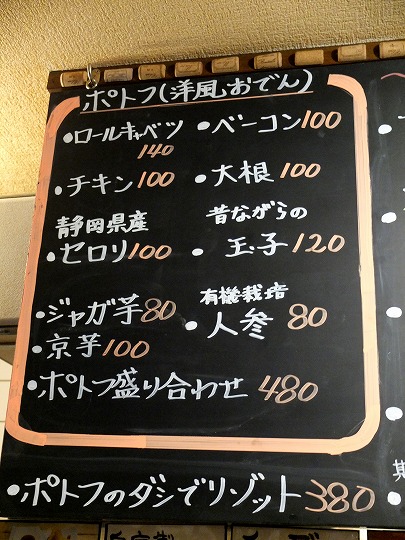 ポトフ(洋風おでん)
・ロールキャベツ 140
・ベーコン100
・チキン100
・大根 100
静岡県産
・セロリ100
昔ながらの
・玉子 120
・ジャガ芋80
有機栽培
・人参 80
・京芋100
・ポトフ盛り合わせ 480
・ポトフのダシでリゾット380